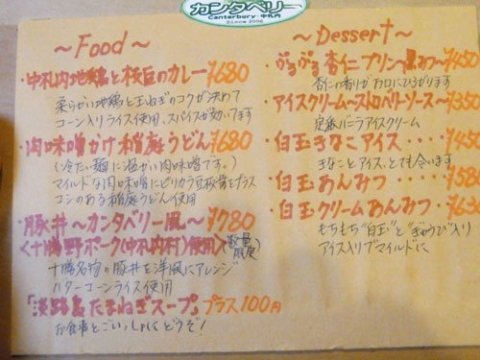 カンタベリー
Canterbury 中札内
Since 2006
〜Food〜
・中札内地鶏と枝豆のカレー ¥680
柔らかい地鶏と玉ねぎのコクが決めて
コーン入りライス使用、スパイスが効いてます
・肉味噌かけ稲庭うどん ¥680
(冷たい麺に温かい肉味噌です。)
マイルドな肉味噌にピリカラ豆板醤をプラス
コシのある稲庭うどん使用
・豚丼〜カンタベリー風〜 ¥780
<十勝野ポーク(中札内村)使用> 数量限定
十勝名物の豚丼を洋風にアレンジ
バターコーンライス使用
・「淡路島たまねぎスープ」プラス100円
お食事とごいっしょにどうぞ!
〜Dessert〜
・ぷるぷる杏仁プリン〜黒みつ〜 ¥450
杏仁の香りがお口にひろがります
・アイスクリーム〜ストロベリーソース〜 ¥350
定番バニラアイスクリーム
・白玉きなこアイス・・・・¥450
きなことアイス、とても合います
・白玉あんみつ・・・・¥580
・白玉クリームあんみつ・¥630
もちもち"白玉"と"ぎゅうひ"入り
アイス入りでマイルドに